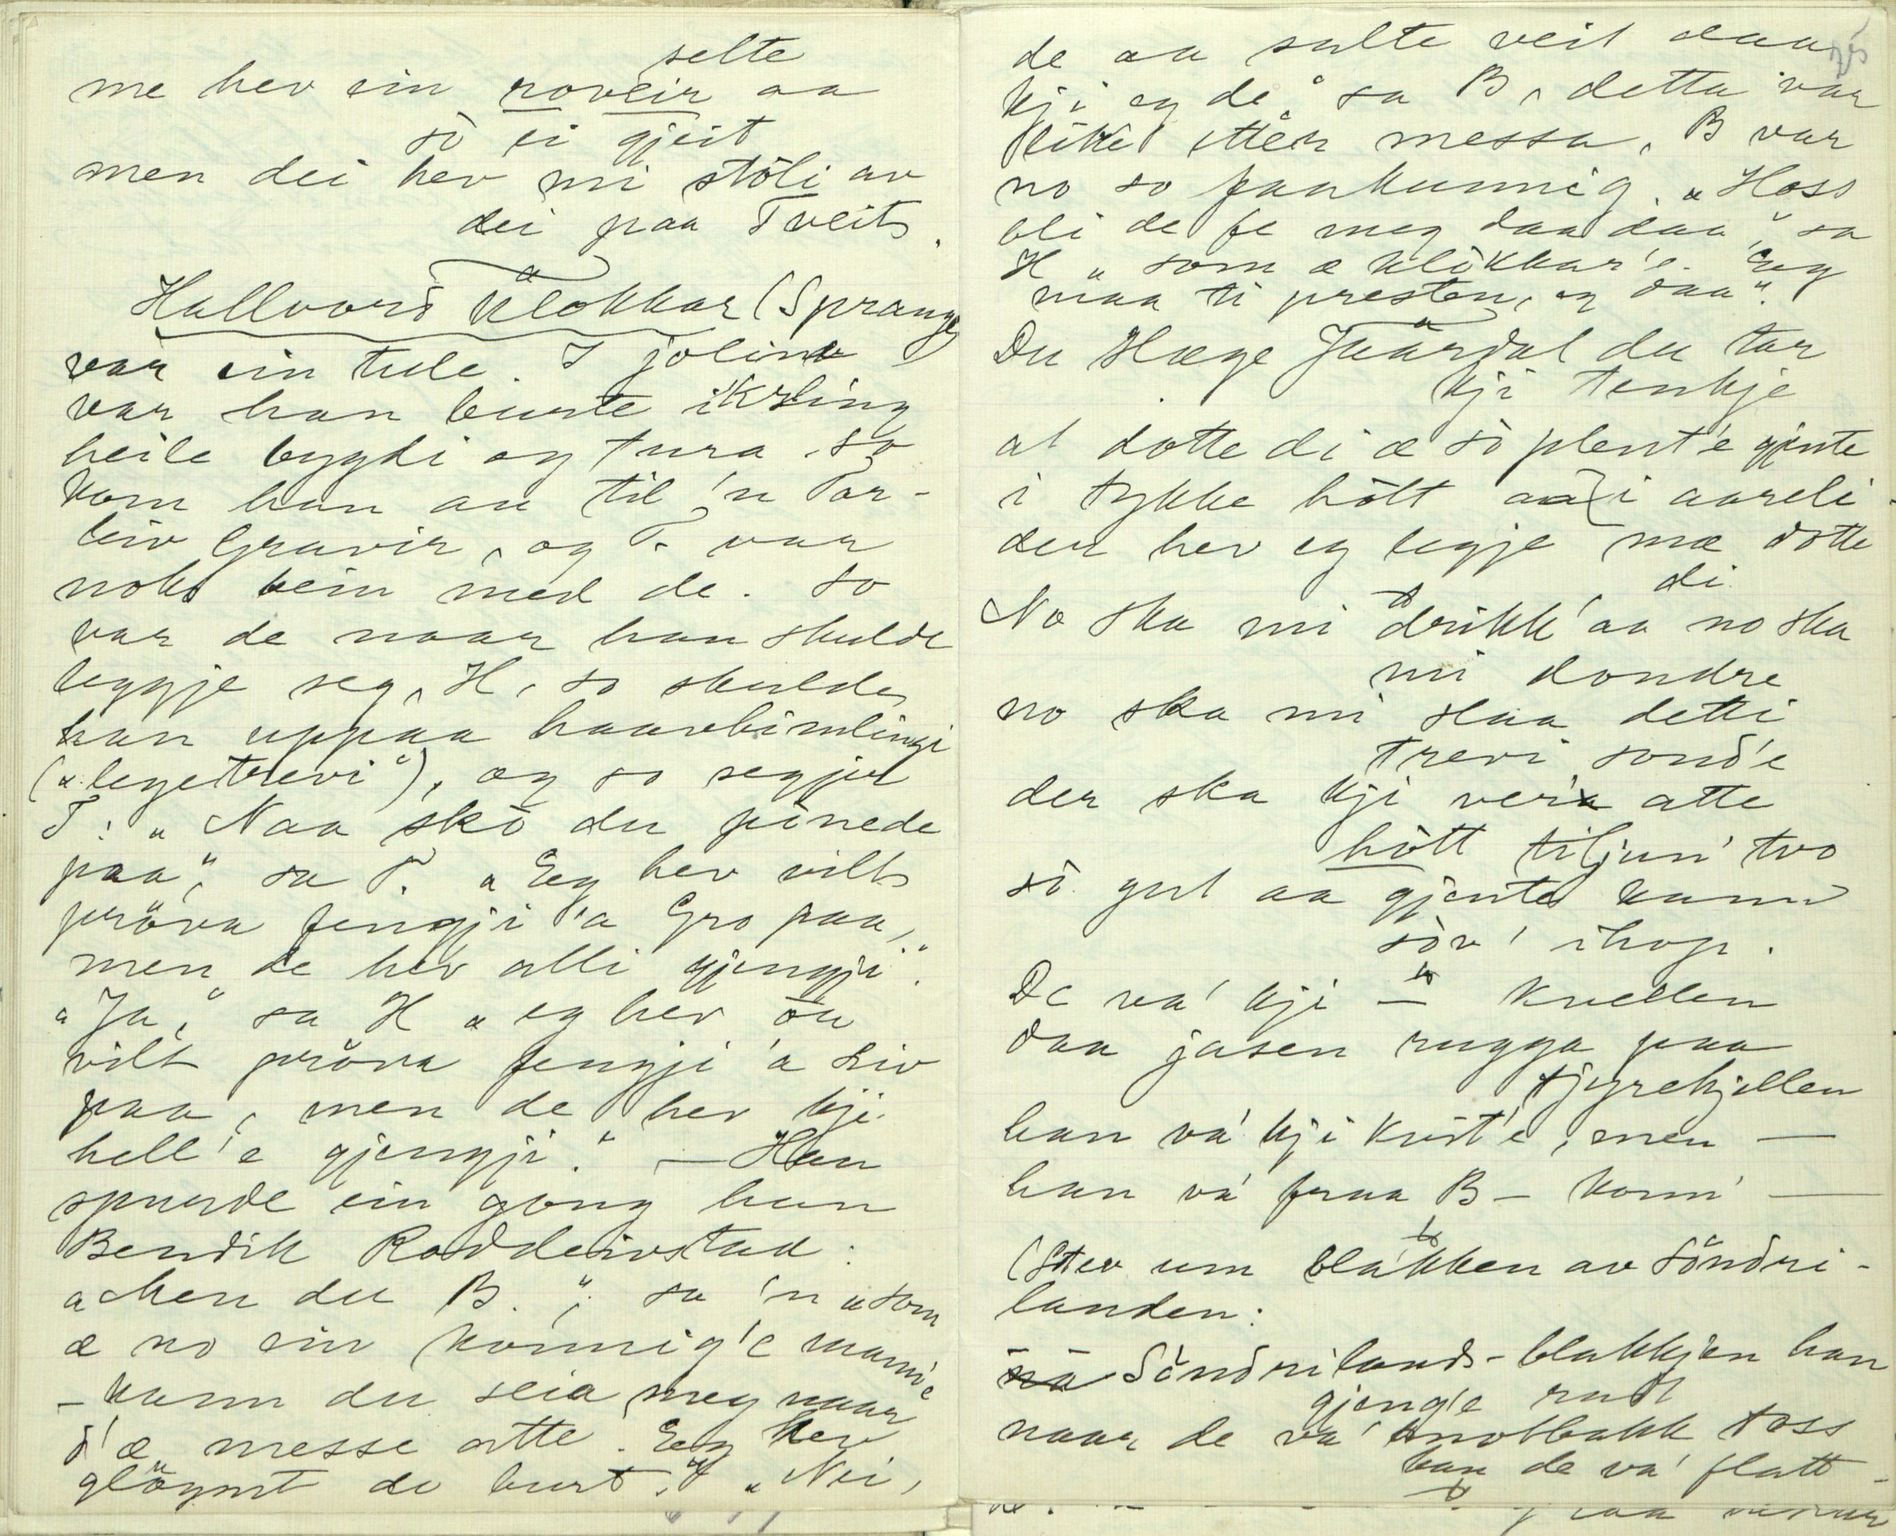 selte
me hev ein roveir aa
so ei gjeit
men dei hev mi stöli av
dei paa Tveito.
Hallvord Klokkar (Sprang
var ein tule. I jolinne
var han burte ikring
heile bygdi og tura. So
kom han au til 'n Tor-
leiv Gravir, og T. var
noko bein med de. So
var de naar han skulde
leggje seg, H, so skulde
han uppaa haavbimlingi
(„legetrevi“), og so segjer
T: „Naa sko du pönede
paa“, sa T. „Eg hev vilt
pröva fengji 'a Gro paa,
men de hev alli gjengji“.
„Ja,“ sa H „eg hev ôu
vilt pröva fengji 'a Liv
paa, men de hev kji
hell'e gjengji.“ — Han
spurde ein gong han
Bendik Roddeivstad:
„Men du B.“, sa 'n „som
æ no ein könnig'e mann'e
– kann du seia meg naar
d'æ messe atte. Eg hev
glöymt de burt.“ „Nei,
de aa salte veit daa
kji eg de“ sa B, detta var
like etter messa. B var
no so faakunnig. „Hoss
bli de fe meg daa daa,“ sa
H „som æ klokkar'e. Eg
maa ti presten, eg daa“.
Du Hæge Juardal du tar
kji tenkje
at dotte di æ so plent'e gjente
i tykke hôlt aa i aareli-
den hev eg legje mæ dotte
di
No ska mi drikk' aa no ska
mi dondre
no ska mi slaa detti
trevi sond'e
der ska kji vera atte
hôtt tiljun' tvo
so gut aa gjente kann
sôv' ihop.
De va' kji — kvellen
daa jasen rugga paa
tjyrekjellen
han va' kji krist'e, men —
han va' fraa B — komm' —
(Stev um blakken av Söndri-
landen:
Söndrilands-blakkjen han
gjeng'e rudt
naar de va' knobbakk toss
han de va' flatt